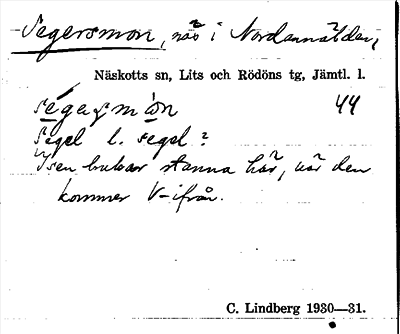 Segersmon, näs i Nordannälden,
Näskotts sn, Lits och Rödöns tg, Jämtl. l.
44
Segel l. segol?
Isen brukar stanna här, när den
kommer V-ifrån.
C. Lindberg 1930—31.